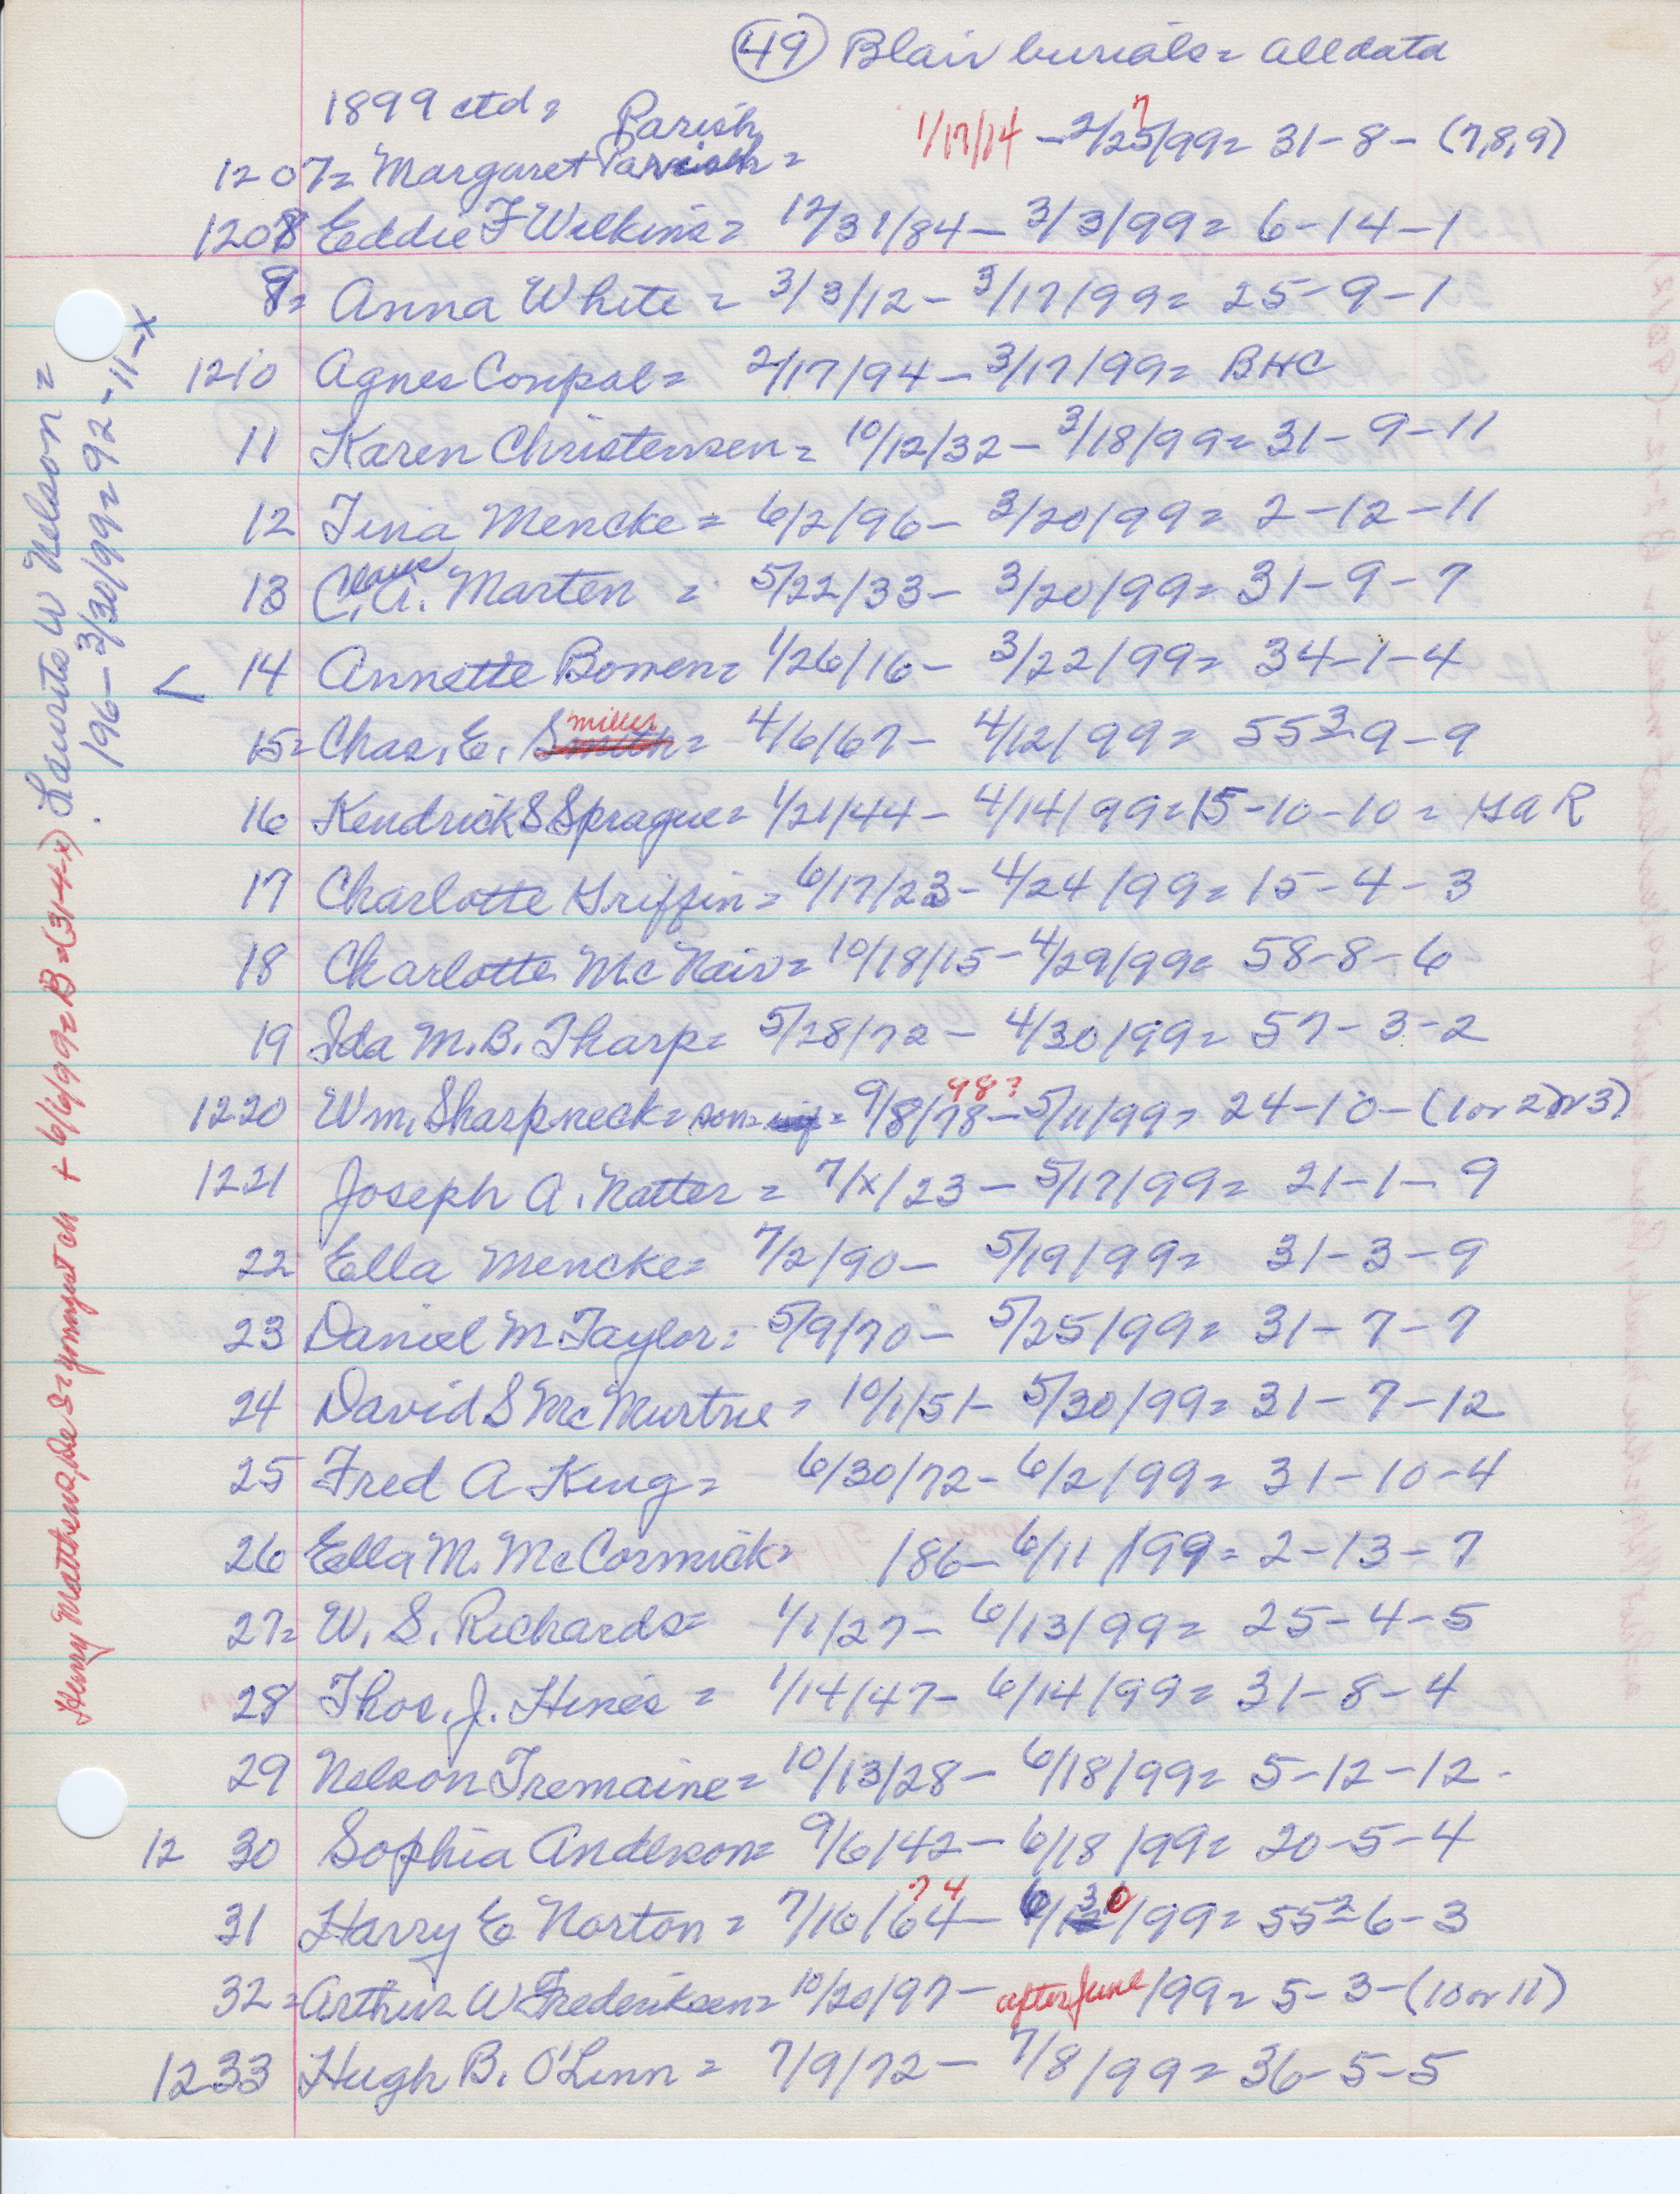 (49) Blair burials = all data
1899 ctd =
Parish
1207 = Margaret Parrish = 1/17/14 - 2/25/99 = 31-8-(7,8,9)
?
1208 Eddie F Wilkins = 12/31/84 - 3/3/99 = 6-14-1
9 = Anna White = 3/3/12 - 3/17/99 = 25-9-1
1210 Agnes Compal = 2/17/94 - 3/17/99 = BHC
11 Karen Christensen = 10/12/32 - 3/18/99 = 31-9-11
12 Tina Mencke = 6/2/96 - 3/20/99 = 2-12-11
Claus
13 C. A. Marten = 5/22/33 - 3/20/99 = 31-9-7
< 14 Annette Bowen = 1/26/16 - 3/22/99 = 34-1-4
miller
15 = Chas. E. Smith = 4/6/67 - 4/12/99 = 55³-9-9
16 Kendrick S Sprague = 1/21/44 - 4/14/99 = 15-10-10 = GAR
17 Charlotte Griffin = 6/17/23 - 4/24/99 = 15-4-3
18 Charlotte McNair = 10/18/15 - 4/29/99 = 58-8-6
19 Ida M. B. Tharp = 5/28/72 - 4/30/99 = 57-3-2
98?
1220 Wm. Sharpneck = son = 9/8/78 - 5/11/99 = 24-10-(1 or 2 or 3)
1221 Joseph A. Natter = 7/x/23 - 5/17/99 = 21-1-9
22 Ella Mencke = 7/2/90 - 5/19/99 = 31-3-9
23 Daniel M. Taylor = 5/9/70 - 5/25/99 = 31-7-7
24 David S McMurtrie = 10/1/51 - 5/30/99 = 31-7-12
25 Fred A King = 6/30/72 - 6/2/99 = 31-10-4
26 Ella M. McCormick = /86 - 6/11/99 = 2-13-7
27 = W. S. Richards = 1/1/27 - 6/13/99 = 25-4-5
28 Thos. J. Hines = 1/14/47 - 6/14/99 = 31-8-4
29 Nelson Tremaine = 10/13/28 - 6/18/99 = 5-12-12
12 30 Sophia Anderson = 9/6/42 - 6/18/99 = 20-5-4
? 4
31 Harry E Norton = 7/16/64 - 6/30/99 = 55²-6-3
32 = Arthur W Frederiksen = 10/20/97 - after June/99 = 5-3-(10 or 11)
1233 Hugh B. O'Linn = 7/9/72 - 7/8/99 = 36-5-5
Laurits W Nelson =
/96 - 3/30/99 = 92-11-x
Henry Matthew, De S = youngest ch + 6/6/99 = B = (31-4-x)